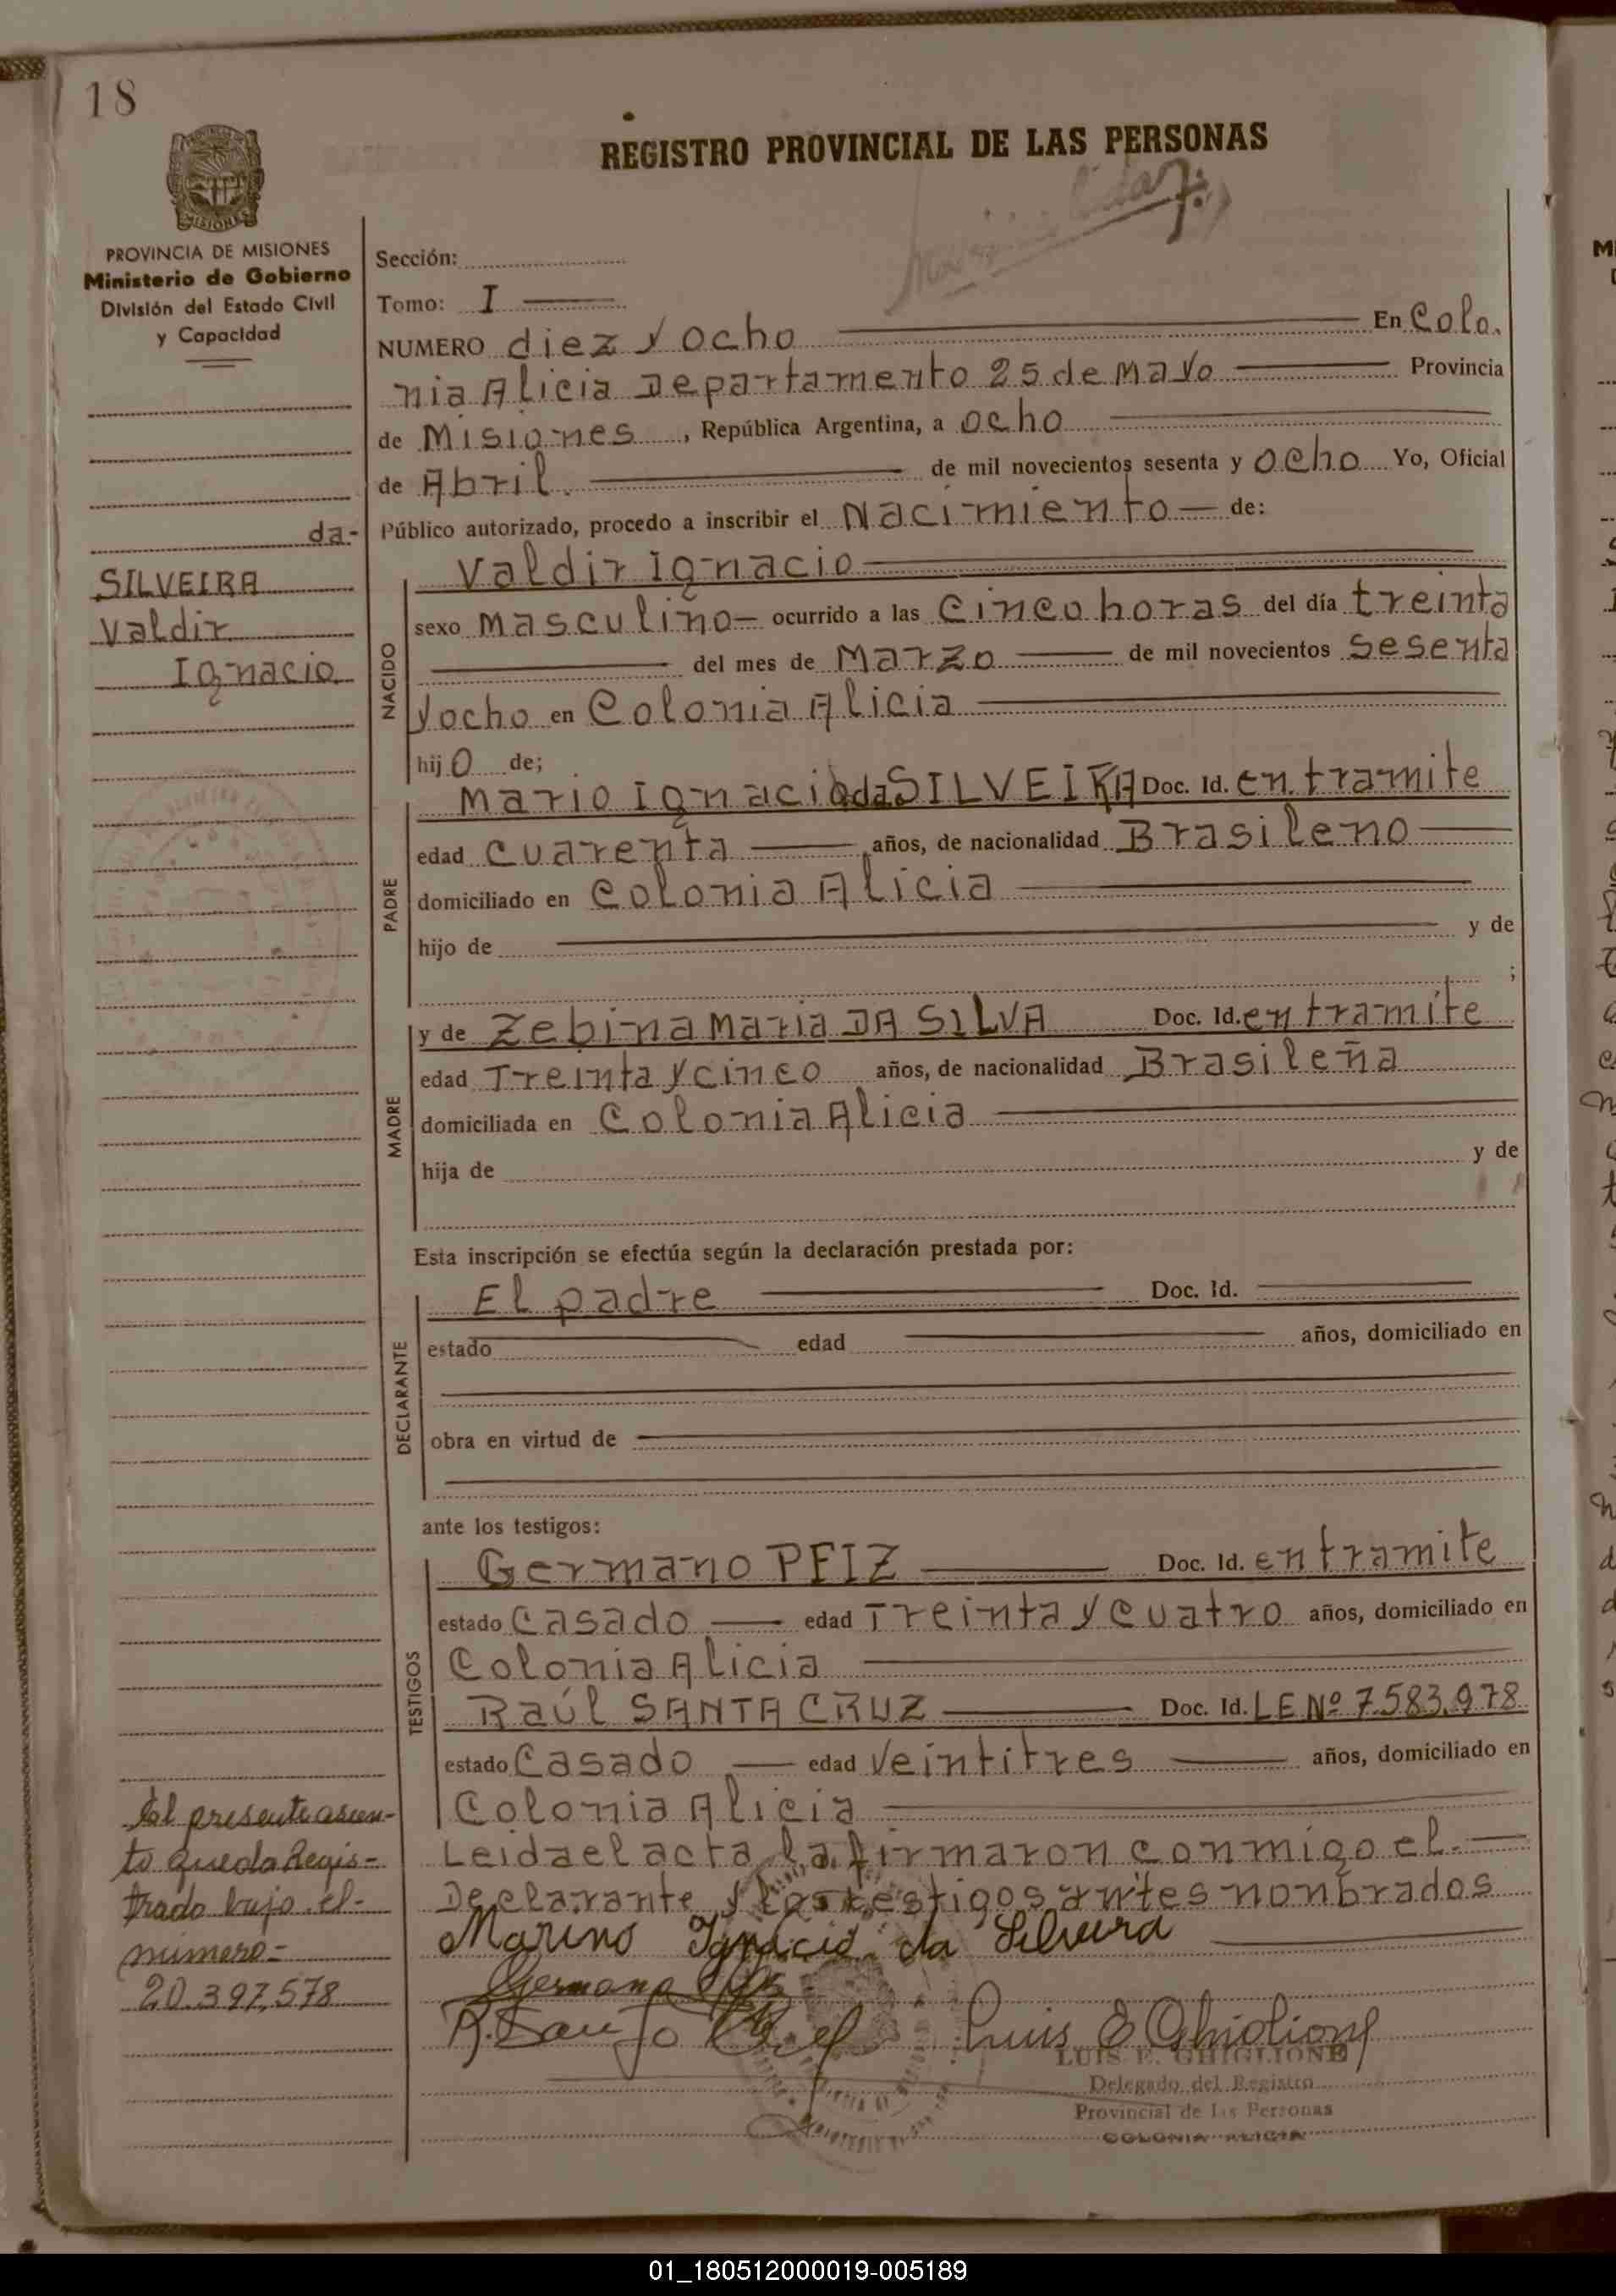 18
REGISTRO PROVINCIAL DE LAS PERSONAS
MISIONES
PROVINCIA DE MISIONES
Ministerio de Gobierno
División del Estado Civil
y Capacidad
Sección:
Tomo: I
NUMERO diez y ocho En Colo.
nia Alicia Departamento 25 de Mayo Provincia
de Misiones, República Argentina, a ocho
de Abril. de mil novecientos sesenta y ocho Yo, Oficial
Público autorizado, procedo a inscribir el Nacimiento de:
da-
SILVEIRA
Valdir
Ignacio
NACIDO
Valdir Ignacio
sexo masculino ocurrido a las cinco horas del día treinta
del mes de Marzo de mil novecientos sesenta
y ocho en Colonia Alicia
hijo de;
PADRE
Mario Ignacio da SILVEIRA Doc. Id. en tramite
edad cuarenta años, de nacionalidad Brasileno
domiciliado en Colonia Alicia
hijo de y de
;
MADRE
y de Zebina Maria DA SILVA Doc. Id. en tramite
edad Treinta y cinco años, de nacionalidad Brasileña
domiciliada en Colonia Alicia
hija de y de
Esta inscripción se efectúa según la declaración prestada por:
DECLARANTE
El padre Doc. Id.
estado edad años, domiciliado en
obra en virtud de
ante los testigos:
TESTIGOS
Germano PEIZ Doc. Id. en tramite
estado Casado edad Treinta y cuatro años, domiciliado en
Colonia Alicia
Raúl SANTA CRUZ Doc. Id. LE Nº 7.583.978
estado Casado edad Veintitres años, domiciliado en
Colonia Alicia
Leida el acta la firmaron conmigo el.
Declarante y los testigos antes nonbrados
Marino Ignacio da Silveira
Germano
Luis E Ghiglione
LUIS E. GHIGLIONE
Delegado del Registro
Provincial de las Personas
COLONIA ALICIA
El presente asien-
to queda Regis-
trado bajo el-
número-
20.397.578
01_180512000019-005189